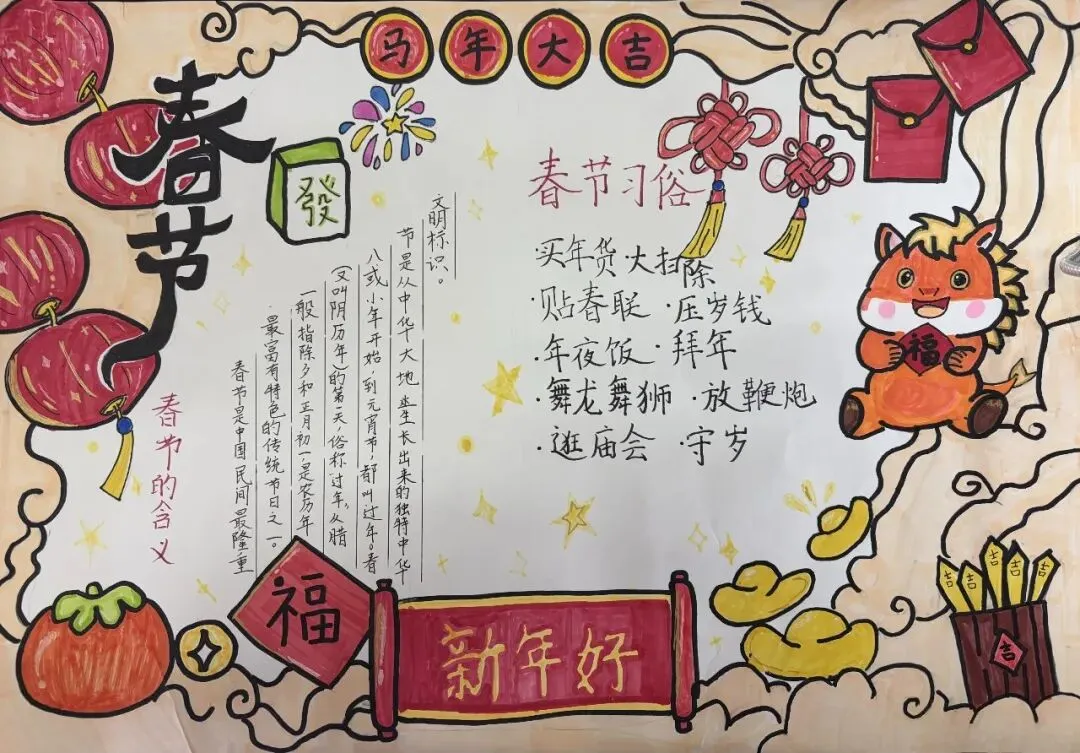 马年大吉
春节
發
春节的含义
春节是中国民间最隆重
最富有特色的传统节日之一。
一般指除夕和正月初一,是农历年
(又叫阴历年)的第一天,俗称过年。从腊
八或小年开始,到元宵节,都叫过年。春
节是从中华大地生长出来的独特中华
文明标识。
春节习俗
·买年货·大扫除
·贴春联·压岁钱
·年夜饭·拜年
·舞龙舞狮·放鞭炮
·逛庙会·守岁
福
福
新年好
吉
吉
吉
吉
吉
吉